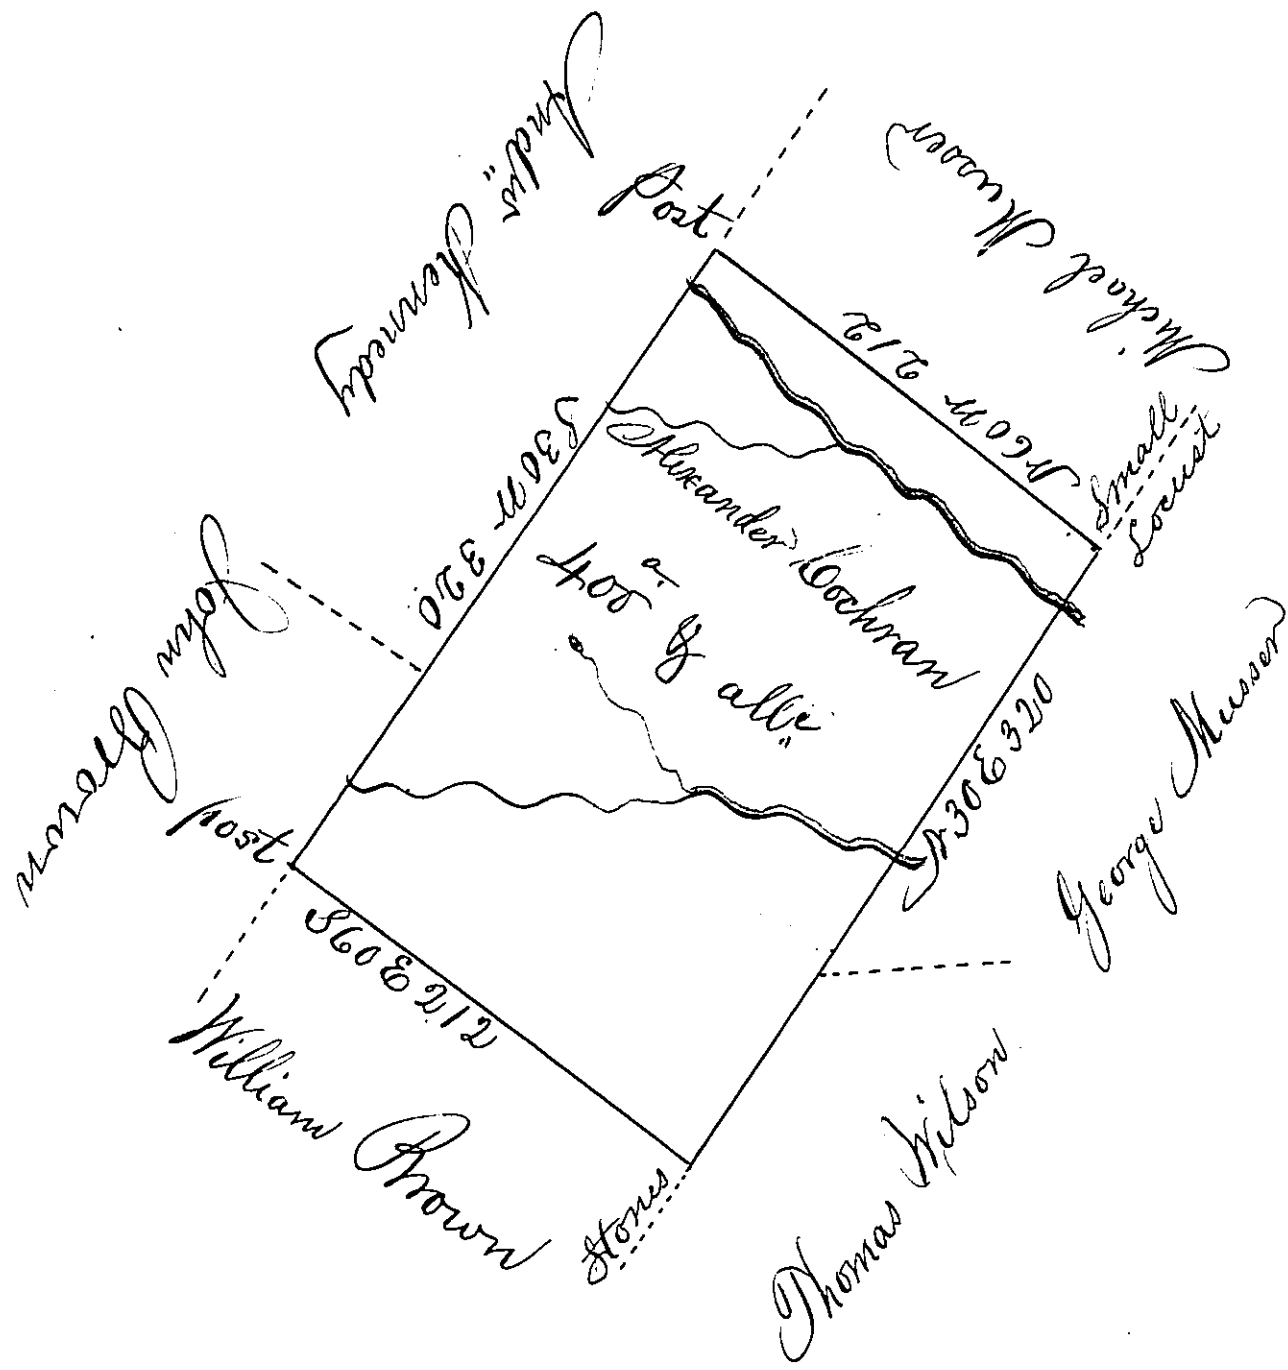 And.w Kennedy
Post
Michael Musser
N60W 212
Small
Locust
S30W 320
Alexander Cochran
400 a. & all.e
John Brown
post
N30E 320
George Musser
S60E 212
William Brown
Stones
Thomas Wilson